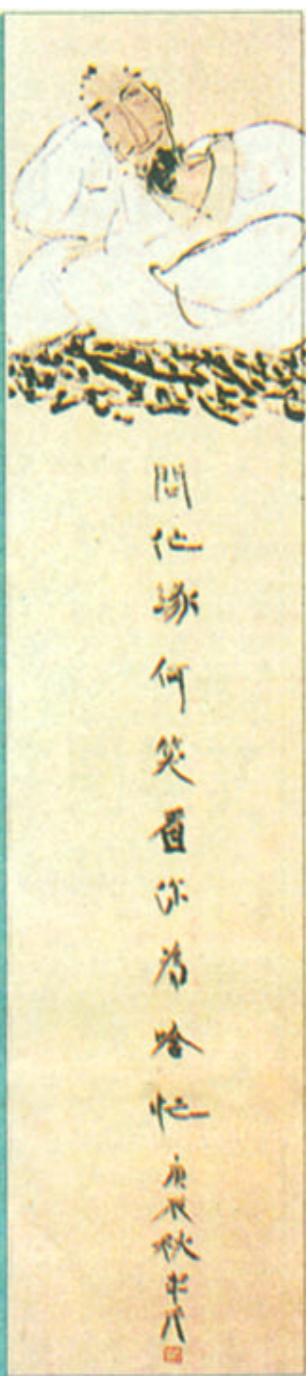 問他緣何笑看你為啥忙庚辰秋